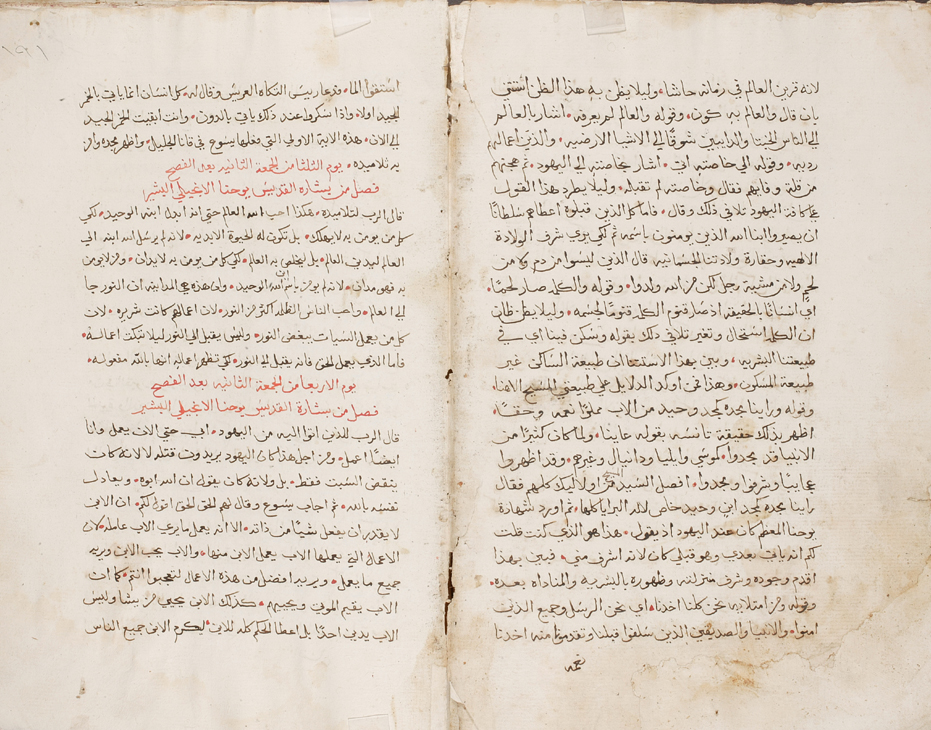 لانه قرين العالم في زمانه حاشا، وليلا يظن به هذا الظن استثنى
بان قال والعالم به كون، وقوله والعالم لم يعرفه، اشار بالعالم
الى الناس الخبثا والدايبين شوقا الى الاشيا الارضيه، والذين اعمالهم
رديه، وقوله الى خاصته اتى، اشار بخاصته الى اليهود، ثم عجبهم
من قلة وفايهم فقال وخاصته لم تقبله، وليلا يطرد هذا القول
على كافة اليهود تلافى ذلك وقال، فاما كل الذين قبلوه اعطاهم سلطانا
ان يصيروا ابنا الله الذين يومنون باسمه ثم لكي يري شرف الولادة
الالهيه وحقارة ولادتنا الجسمانيه قال الذين ليسوا من دم ولا من
لحم ولا من مشية رجل لكن من الله ولدوا، وقوله والكلمه صار لحما،
اي انسانا بالحقيقه اذ صار قنوم الكلمه قنوما لجسمه، وليلا يظن ظان
ان الكلمه استحال وتغير تلافى ذلك بقوله وسكن فينا اي في
طبيعتنا البشريه، وبين بهذا الاستعلان طبيعة الساكن غير
طبيعة المسكون، وهذا من اوكد الدلايل على طبيعتي المسيح الاهنا،
وقوله وراينا مجده كمجد وحيد من الاب مملوا نعمه وحقا،
اظهر بذلك حقيقة تانسه بقوله عاينا، ولما كان كثيرا من
الانبيا قد مجدوا، كموسى وايليا ودانيال وغيرهم، وقد اظهروا
عجايبا وشرفوا ومجدوا، افصل السيد من اولايك كلهم فقال
راينا مجده كمجد ابن وحيد خاص لاله البرايا كلها، ثم اورد شهادة
يوحنا المعظم كان عند اليهود اذ يقول، هذا هو الذي كنت قلت
لكم انه ياتي بعدي وهو قبلي كان لانه اشرف مني، فبين بهذا
اقدم وجوده وشرف منزلته وظهوره بالبشريه والمناداه بعده،
وقوله ومن امتلايه نحن كلنا اخذنا، اي نحن الرسل وجميع الذين
امنوا، والانبيا والصديقين الذين سلفوا قبلنا وتقدموا منه اخذنا
نعمه
استقوا الما، فدعا رييس التكاه العريس وقال له، كل انسان انما ياتي بالخمر
الجيد اولا، واذا سكروا عند ذلك ياتي بالدون، وانت ابقيت الخمر الجيد
الى الان، هذه الاية الاولى التي فعلها يسوع في قانا الجليل، واظهر مجده وامن
به تلاميذه، يوم الثلثا من الجمعة الثانيه بعد الفصح
فصل من بشاره القديس يوحنا الانجيلي البشير
قال الرب لتلاميذه، هكذا احب الله العالم حتى انه ابدل ابنه الوحيد، لكي
كل من يومن به لا يهلك، بل تكون له الحيوة الابديه، لانه لم يرسل الله ابنه الى
العالم ليدين العالم، بل ليخلص به العالم، لكي كل من يومن به لا يدان، ومن لا يومن
به فهو مدان، لانه لم يومن باسم ابن الله الوحيد، وان هذه هي المداينه ان النور جا
الى العالم، واحب الناس الظلمه اكثر من النور، لان اعمالهم كانت شريره، لان
كل من يعمل السيات يبغض النور، وليس يقبل الى النور ليلا تبكت اعماله،
فاما الذي يعمل الحق فانه يقبل الى النور، لكي تظهر اعماله انها بالله مفعوله،
يوم الاربعا من الجمعة الثانيه بعد الفصح
فصل من بشارة القديس يوحنا الانجيلي البشير
قال الرب للذين اتوا اليه من اليهود، ابي حتى الان يعمل وانا
ايضا اعمل، ومن اجل هذا كان اليهود يريدون قتله لا لانه كان
ينقض السبت فقط، بل ولانه كان يقول ان الله ابوه، ويعادل
نفسه بالله، ثم اجاب يسوع وقال لهم الحق الحق اقول لكم، ان الابن
لا يقدر ان يفعل شيا من ذاته، الا انه يعمل ما يرى الاب عامله، لان
الاعمال التي يعملها الاب يعمل الابن منها، والاب يحب الابن ويريه
جميع ما يعمل، ويريه افضل من هذه الاعمال لتعجبوا انتم، كما ان
الاب يقيم الموتى ويحييهم، كذلك الابن يحيي من يشا، وليس
الاب يدين احدا بل اعطا الحكم كله للابن، ليكرم الابن جميع الناس